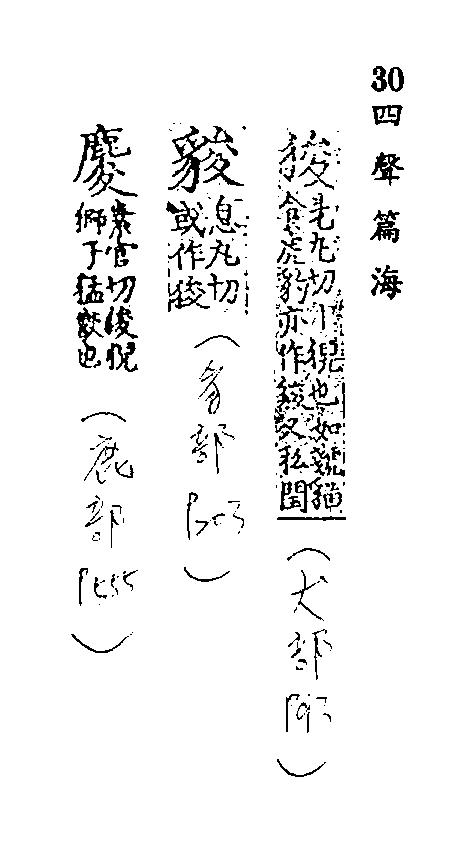 30四聲篇海
狻
丸切狻猊也如虦貓
食虎豹亦作又私閏
(犬部
息丸切
或作狻
(豸部
素官切狻猊
獅子猛獸也
(鹿部 P555)